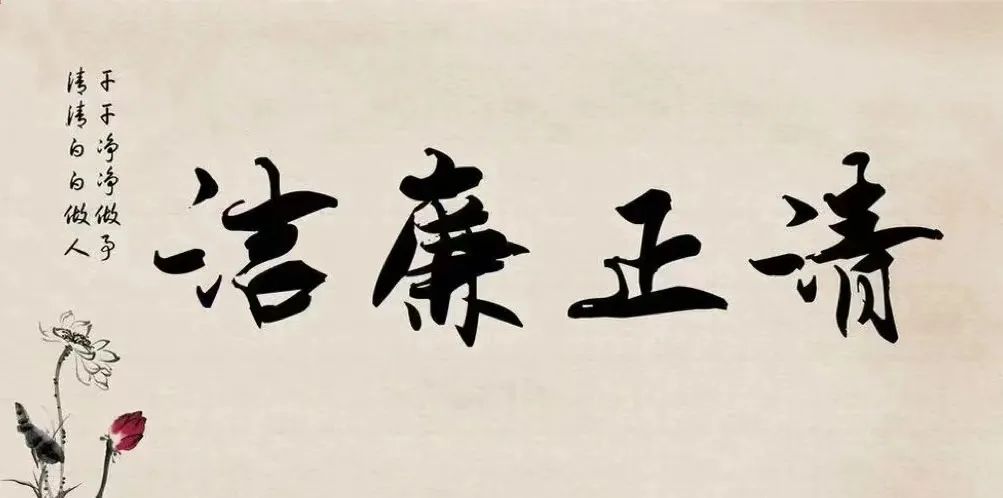 清正廉洁
干干净净做事
清清白白做人